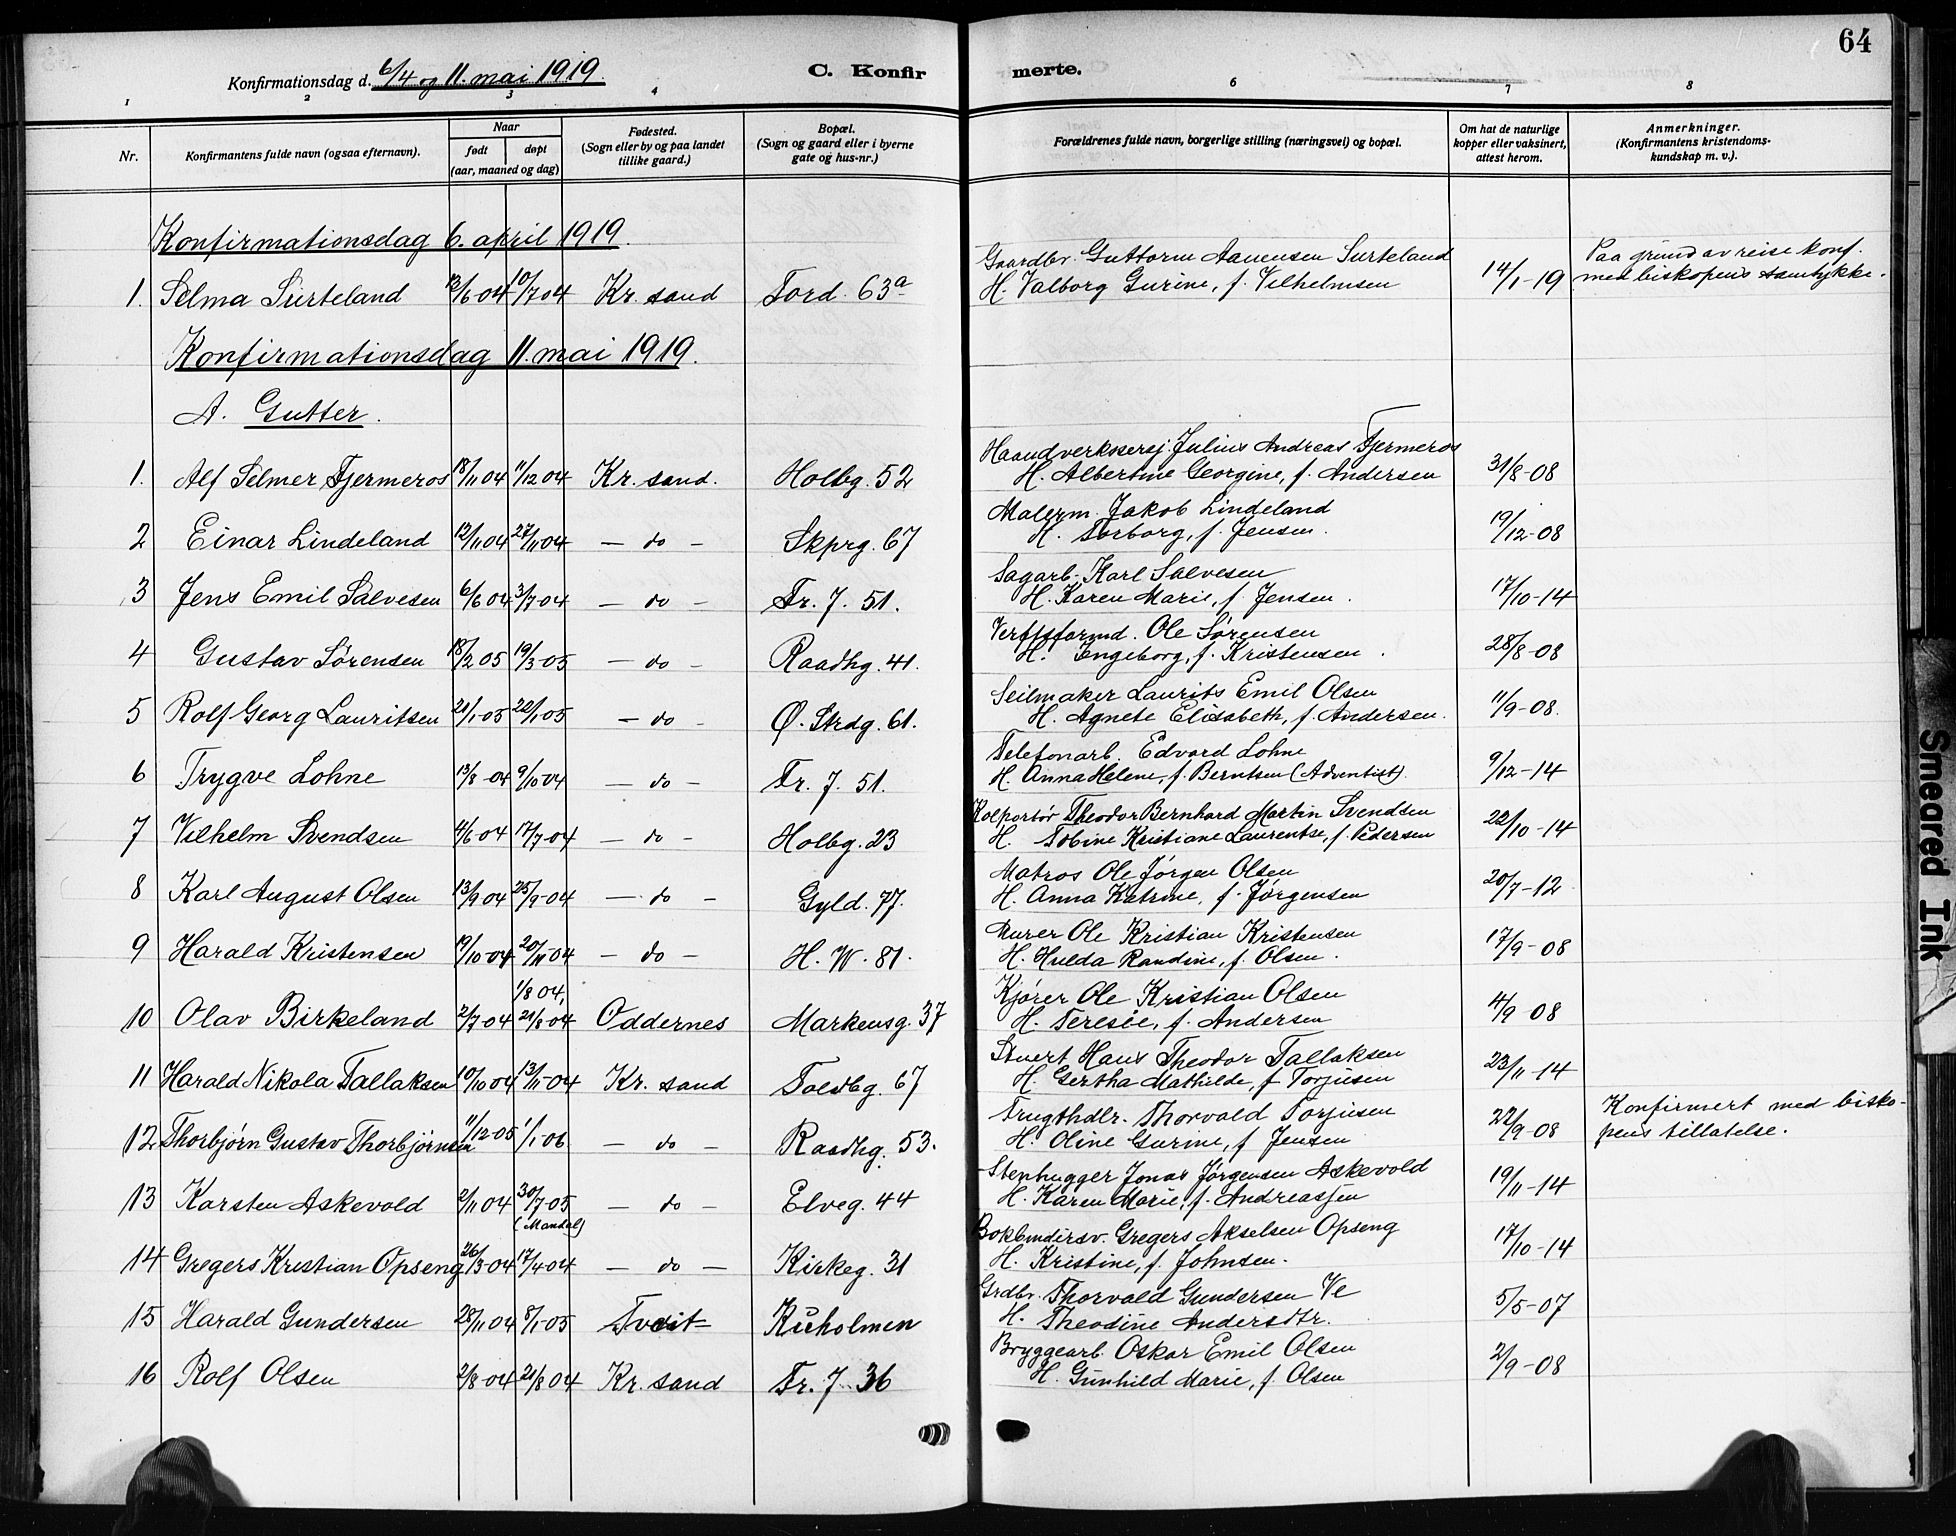 64
Konfirmationsdag d. 6/4 og 11. mai 1919.
C. Konfirmerte.
1 2 3 4 6 7 8
Nr.
Konfirmantens fulde navn (ogsaa efternavn).
Naar
født
døpt
(aar, maaned og dag)
Fødested.
(Sogn eller by og paa landet
tillike gaard.)
Bopæl.
(Sogn og gaard eller i byerne
gate og hus-nr.)
Forældrenes fulde navn, borgerlige stilling (næringsvei) og bopæl.
Om hat de naturlige
kopper eller vaksinert,
attest herom.
Anmerkninger.
(Konfirmantens kristendoms-
kundskap m. v.).
Konfirmationsdag 6. april 1919.
1. Selma Surteland 13/6 04 10/7 04 Kr. sand Tord. 63a
Gaardbr. Guttorm Aanensen Surteland
H. Valborg Gurine, f. Vilhelmsen
14/1-19
Paa grund av reise konf.
med biskopens samtykke.
Konfirmationsdag 11. mai 1919.
A. Gutter.
1. Alf Selmer Fjermeros 18/11 04 11/12 04 Kr. sand. Holbg. 52
Haandverkssvej Julius Andreas Fjermeros
H. Albertine Georgine, f. Andersen
31/8-08
2 Einar Lindeland 12/11 04 27/11 04 – do – Skprg. 67
Malerm. Jakob Lindeland
H. Torborg, f. Jensen.
19/12-08
3 Jens Emil Salvesen 6/6 04 3/7 04 – do – Fr. 7. 51.
Sagarb. Karl Salvesen
H. Karen Marie, f. Jensen.
17/10-14
4 Gustav Sørensen 18/2 05 19/3-05 – do – Raadhg. 41.
Verftsformd. Ole Sørensen
H. Engeborg, f. Kristensen.
28/8-08
5 Rolf Georg Lauritsen 21/1-05 22/1 05 – do – Ø. Strdg. 61.
Seilmaker Laurits Emil Olsen
H. Agnete Elisabeth, f. Andersen.
11/9-08.
6 Trygve Lohne 13/8-04 9/10-04 – do – Fr. 7. 51.
Telefonarb. Edvard Lohne
H. Anna Helene, f. Berntsen (Adventist).
9/12-14
7 Vilhelm Svendsen 4/6 04 17/7-04 – do – Holbg. 23
Kolportør Theodor Bernhard Martin Svendsen
H. Tobine Kristiane Laurentse, f. Pedersen
22/10-14
8 Karl August Olsen 13/9 04 25/9-04 – do – Gyld. 77.
Matros Ole Jørgen Olsen
H. Anna Katrine, f. Jørgensen
20/7-12
9 Harald Kristensen 19/10-04 20/11-04 – do – H. W. 81.
Murer Ole Kristian Kristensen
H. Hulda Randine, f. Olsen.
17/9-08
1/8 04,
10 Olav Birkeland 2/7-04 21/8-04 Oddernes Markensg. 37
Kjører Ole Kristian Olsen
H. Teresie, f. Andersen
4/9 08
11 Harald Nikolai Tallaksen 10/10 04 13/11-04 Kr. sand Toldbg. 67
Stuert Hans Theodor Tallaksen
H. Gertha Mathilde, f Torjusen
23/11-14
12 Thorbjørn Gustav Thorbjørnsen 11/12-05 1/1-06 – do – Raadhg. 53.
Frugthdlr. Thorvald Torjusen
H. Oline Gurine, f Jensen
22/9-08
Konfirmert med bisko-
pens tillatelse.
13 Karsten Askevold 2/11 04 30/7-05 – do – Elveg. 44
(Mandal)
Stenhugger Jonas Jørgensen Askevold
H. Karen Marie, f. Andreassen
19/11-14
14 Gregers Kristian Opseng 26/3-04 17/4-04 – do – Kirkeg. 31
Bokbindersv. Gregers Akselsen Opseng
H. Kristine, f. Johnsen.
17/10-14
15 Harald Gundersen 28/11 04 8/1-05 Tveit Kuholmen
Grdbr. Thorvald Gundersen Ve
H. Theodine Andersdtr.
5/5-07
16 Rolf Olsen 2/8-04 21/8 04 Kr. sand Fr. 7. 36
Bryggearb. Oskar Emil Olsen
H. Gunhild Marie, f. Olsen
2/9-08
Smeared Ink